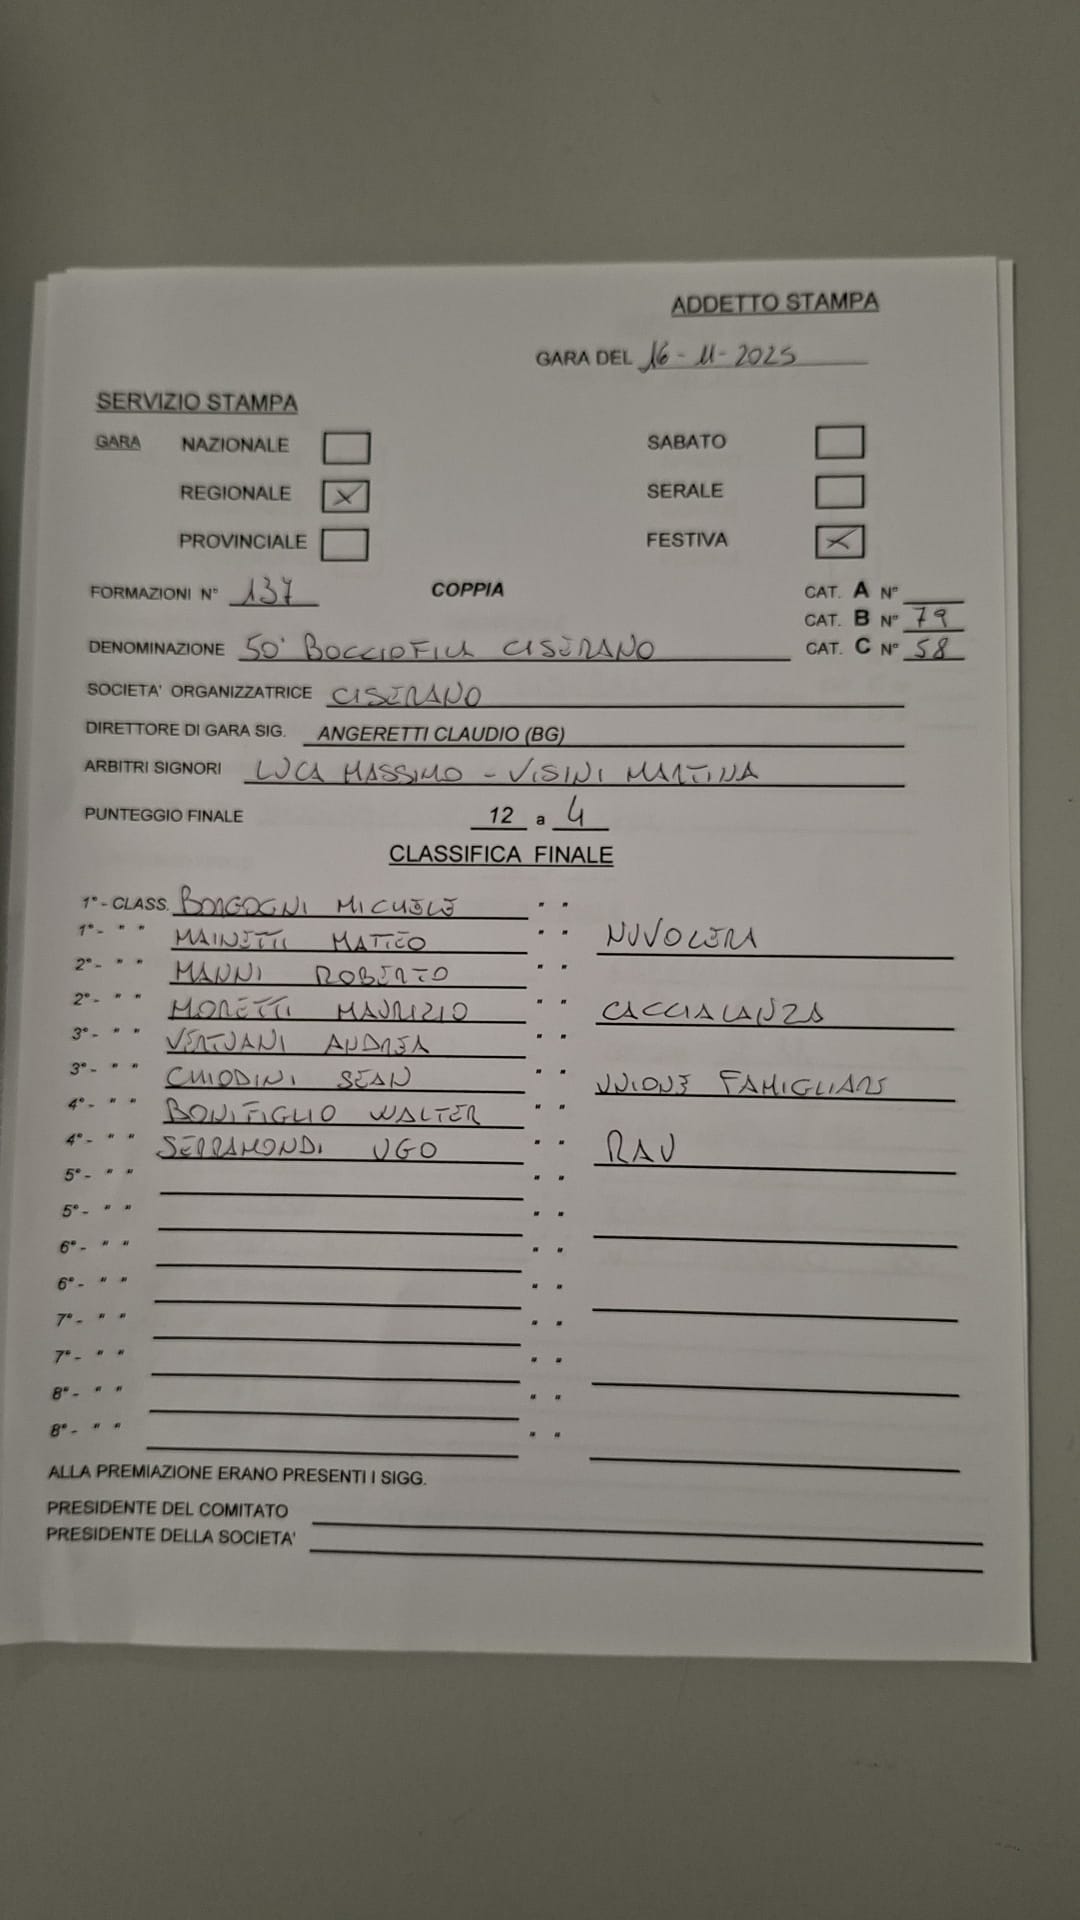 ADDETTO STAMPA
GARA DEL 16-11-2025
SERVIZIO STAMPA
GARA NAZIONALE SABATO
REGIONALE X SERALE
PROVINCIALE FESTIVA X
FORMAZIONI N° 137 COPPIA CAT. A N°
CAT. B N° 79
DENOMINAZIONE 50° BOCCIOFILA CISERANO CAT. C N° 58
SOCIETA' ORGANIZZATRICE CISERANO
DIRETTORE DI GARA SIG. ANGERETTI CLAUDIO (BG)
ARBITRI SIGNORI LUCA MASSIMO - VISINI MARTINA
PUNTEGGIO FINALE 12 a 4
CLASSIFICA FINALE
1°- CLASS. BORGOGNI MICHELE " "
1°- " " MAINETTI MATTEO " " NUVOLERA
2°- " " MANNI ROBERTO " "
2°- " " MORETTI MAURIZIO " " CACCIALANZA
3°- " " VERTUANI ANDREA " "
3°- " " CHIODINI SEAN " " UNIONE FAMIGLIARE
4°- " " BONIFIGLIO WALTER " "
4°- " " SERRAMONDI UGO " " RAU
5°- " " " "
5°- " " " "
6°- " " " "
6°- " " " "
7°- " " " "
7°- " " " "
8°- " " " "
8°- " " " "
ALLA PREMIAZIONE ERANO PRESENTI I SIGG.
PRESIDENTE DEL COMITATO
PRESIDENTE DELLA SOCIETA'